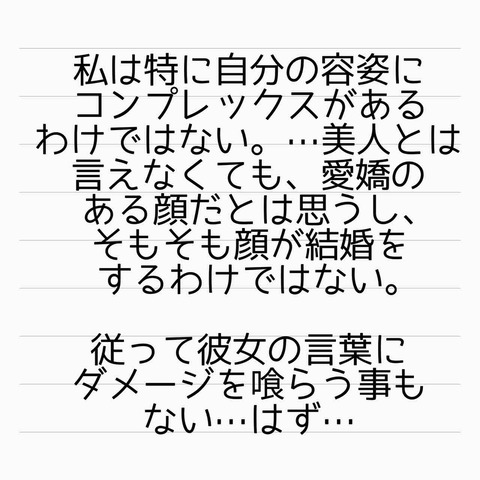 私は特に自分の容姿に
コンプレックスがある
わけではない。…美人とは
言えなくても、愛嬌の
ある顔だとは思うし、
そもそも顔が結婚を
するわけではない。
従って彼女の言葉に
ダメージを喰らう事も
ない…はず…